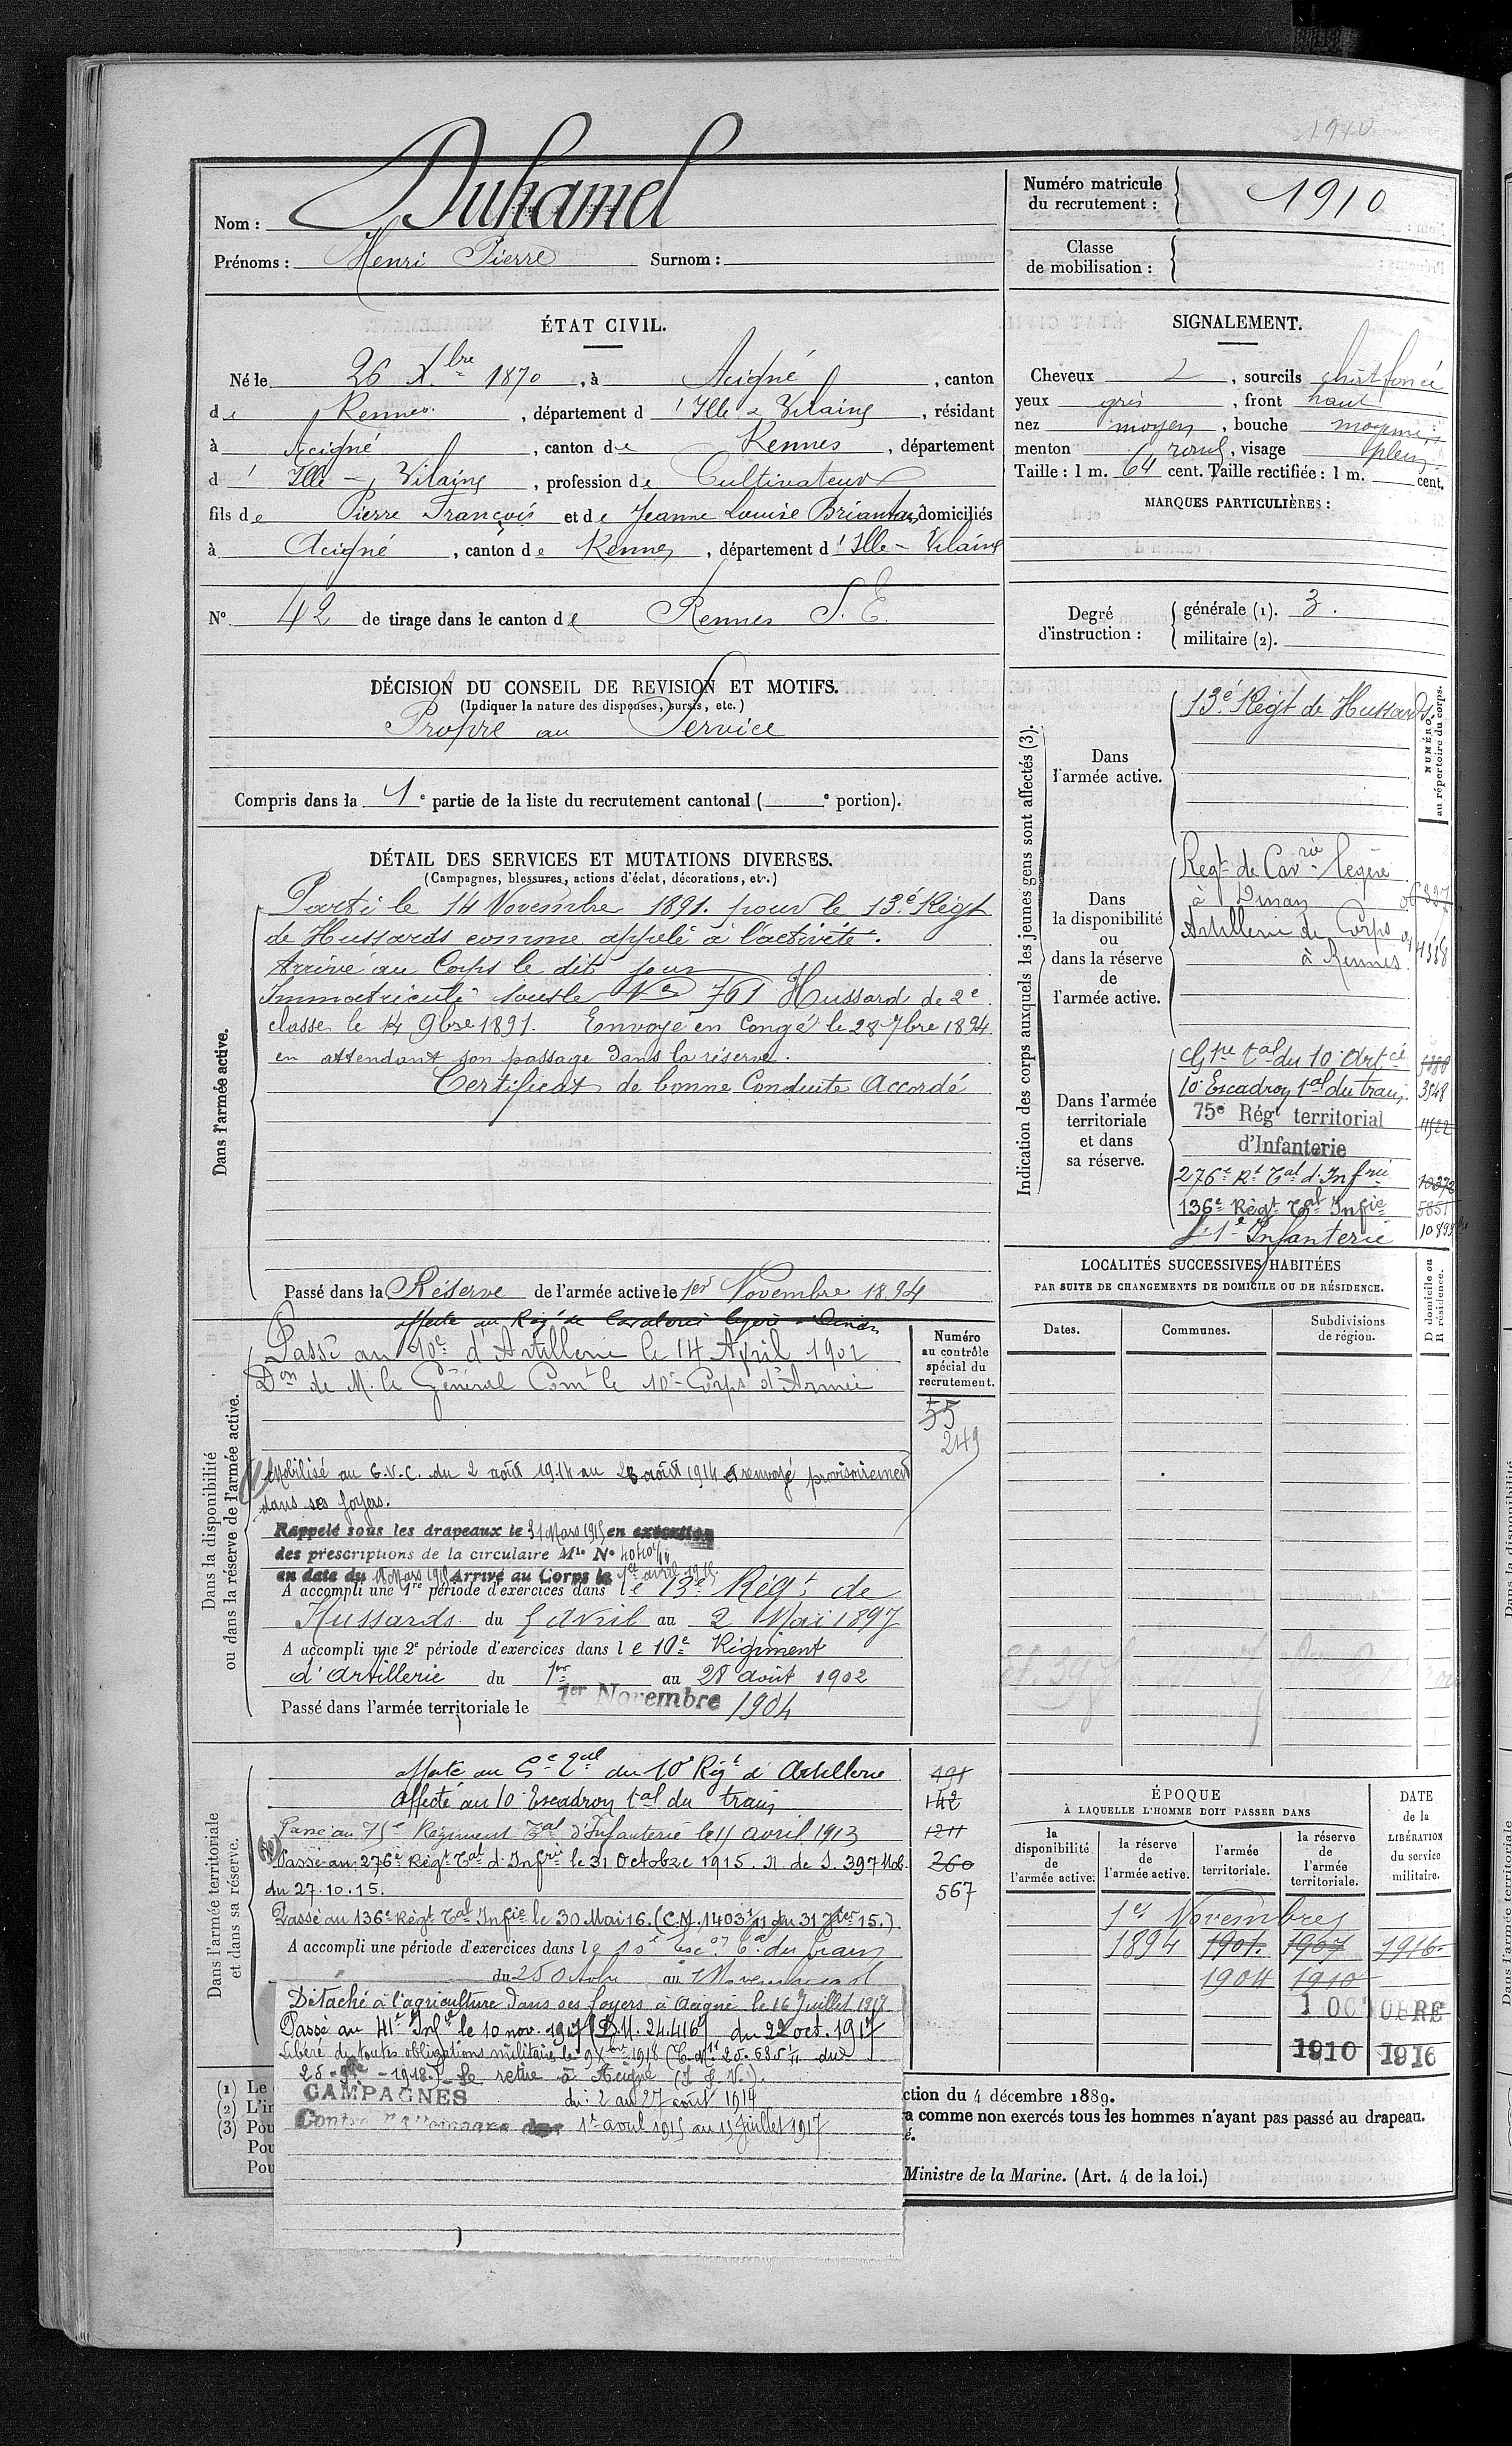 1910
Nom : Duhamel
Prénoms : Henri Pierre Surnom :
Numéro matricule du recrutement : 1910
Classe de mobilisation :
ÉTAT CIVIL.
Né le 26 Xbre 1870, à Acigné, canton
de Rennes, département d'Ille & Vilaine, résidant
à Acigné, canton de Rennes, département
d'Ille - Vilaine, profession de Cultivateur
fils de Pierre François et de Jeanne Louise domiciliés
à Acigné, canton de Rennes, département d'Ille - Vilaine
N° 42 de tirage dans le canton de Rennes S. E.
SIGNALEMENT.
Cheveux, sourcils chat foncé
yeux gris, front haut
nez moyen, bouche moyenne
menton rond, visage plein
Taille : 1 m. 64 cent. Taille rectifiée : 1 m. cent.
MARQUES PARTICULIÈRES :
Degré d'instruction : générale (1). 3.
militaire (2).
DÉCISION DU CONSEIL DE REVISION ET MOTIFS.
(Indiquer la nature des dispenses, sursis, etc.)
Propre au Service
Compris dans la 1e partie de la liste du recrutement cantonal ( e portion).
DÉTAIL DES SERVICES ET MUTATIONS DIVERSES.
(Campagnes, blessures, actions d'éclat, décorations, etc.)
Dans l'armée active.
Parti le 14 Novembre 1891. pour le 13e Régt
de Hussards comme appelé à l'activité.
Arrivé au Corps le dit jour
Immatriculé sous le No 761 Hussard de 2e
classe le 14 9bre 1891. Envoyé en Congé le 28 7bre 1894
en attendant son passage dans la réserve.
Certificat de bonne Conduite Accordé
Passé dans la Réserve de l'armée active le 1er Novembre 1894
Dans la disponibilité ou dans la réserve de l'armée active.
affecté au Régt de Cavalerie légère à Dinan
Passé au 10e d'Artillerie le 14 April 1902
Don de M. le Général Comt le 10e Corps d'Armée
Mobilisé au G.V.C. du 2 août 1914 au 28 août 1914 et renvoyé provisoirement
dans ses foyers.
Rappelé sous les drapeaux le 31 Mars 1915 en exécution
des prescriptions de la circulaire Mlle N°
en date du Mars 1915 Arrivé au Corps le 1er avril 1915.
A accompli une 1re période d'exercices dans le 13e Régt de
Hussards du 5 Avril au 2 Mai 1897
A accompli une 2e période d'exercices dans le 10e Régiment
d'Artillerie du 1er au 28 août 1902
Passé dans l'armée territoriale le 1er Novembre 1904
Numéro au contrôle spécial du recrutement.
55
249
Dans l'armée territoriale et dans sa réserve.
affecté au Ge Tal du 10e Régt d'Artillerie 491
Affecté au 10e Escadron tal du train 142
Passé au 75e Régiment Tal d'Infanterie le 11 avril 1913 1211
Passé au 276e Régt Tal d'Infrie le 31 Octobre 1915. N. de S. 397 Mob. 260
du 27.10.15. 567
Passé au 136e Régt Tal Infie le 30 Mai 16.
A accompli une période d'exercices dans le
Détaché à l'agriculture dans ses foyers à Acigné le 16 Juillet 1917
Passé au 41e Infie le 10 nov. 1917 (D.M. 24.416) du 22 oct. 1917
Libéré de toutes obligations militaires le 9 Xbre 1918
Se retire à Acigné
CAMPAGNES du : 2 au 27 août 1914
Contre l'Allemagne 1er avril 1915 au 15 Juillet 1917
Indication des corps auxquels les jeunes gens sont affectés (3).
NUMÉRO au répertoire du corps.
Dans l'armée active.
13e Régt de Hussards
Dans la disponibilité ou dans la réserve de l'armée active.
Régt de Cavrie légère
à Dinan
Artillerie de Corps
à Rennes
Dans l'armée territoriale et dans sa réserve.
Gpe tal du 10e Artie
10e Escadron tal du train 3548
75e Régt territorial 11522
d'Infanterie
276e Rt Tal d'Infrie 10372
136e Régt Tal Infie 5851
41e Infanterie
LOCALITÉS SUCCESSIVES HABITÉES
PAR SUITE DE CHANGEMENTS DE DOMICILE OU DE RÉSIDENCE.
Dates. Communes. Subdivisions de région. D domicile ou R résidence.
ÉPOQUE
À LAQUELLE L'HOMME DOIT PASSER DANS
DATE de la LIBÉRATION du service militaire.
la disponibilité de l'armée active.
la réserve de l'armée active.
l'armée territoriale.
la réserve de l'armée territoriale.
1er Novembre
1894 1901. 1907 1916.
1904 1910
1 OCTOBRE
1910 1916
(1) Le
(2) L'in
(3) Pou
Pou
Pou
ction du 4 décembre 1889.
a comme non exercés tous les hommes n'ayant pas passé au drapeau.
é.
Ministre de la Marine. (Art. 4 de la loi.)